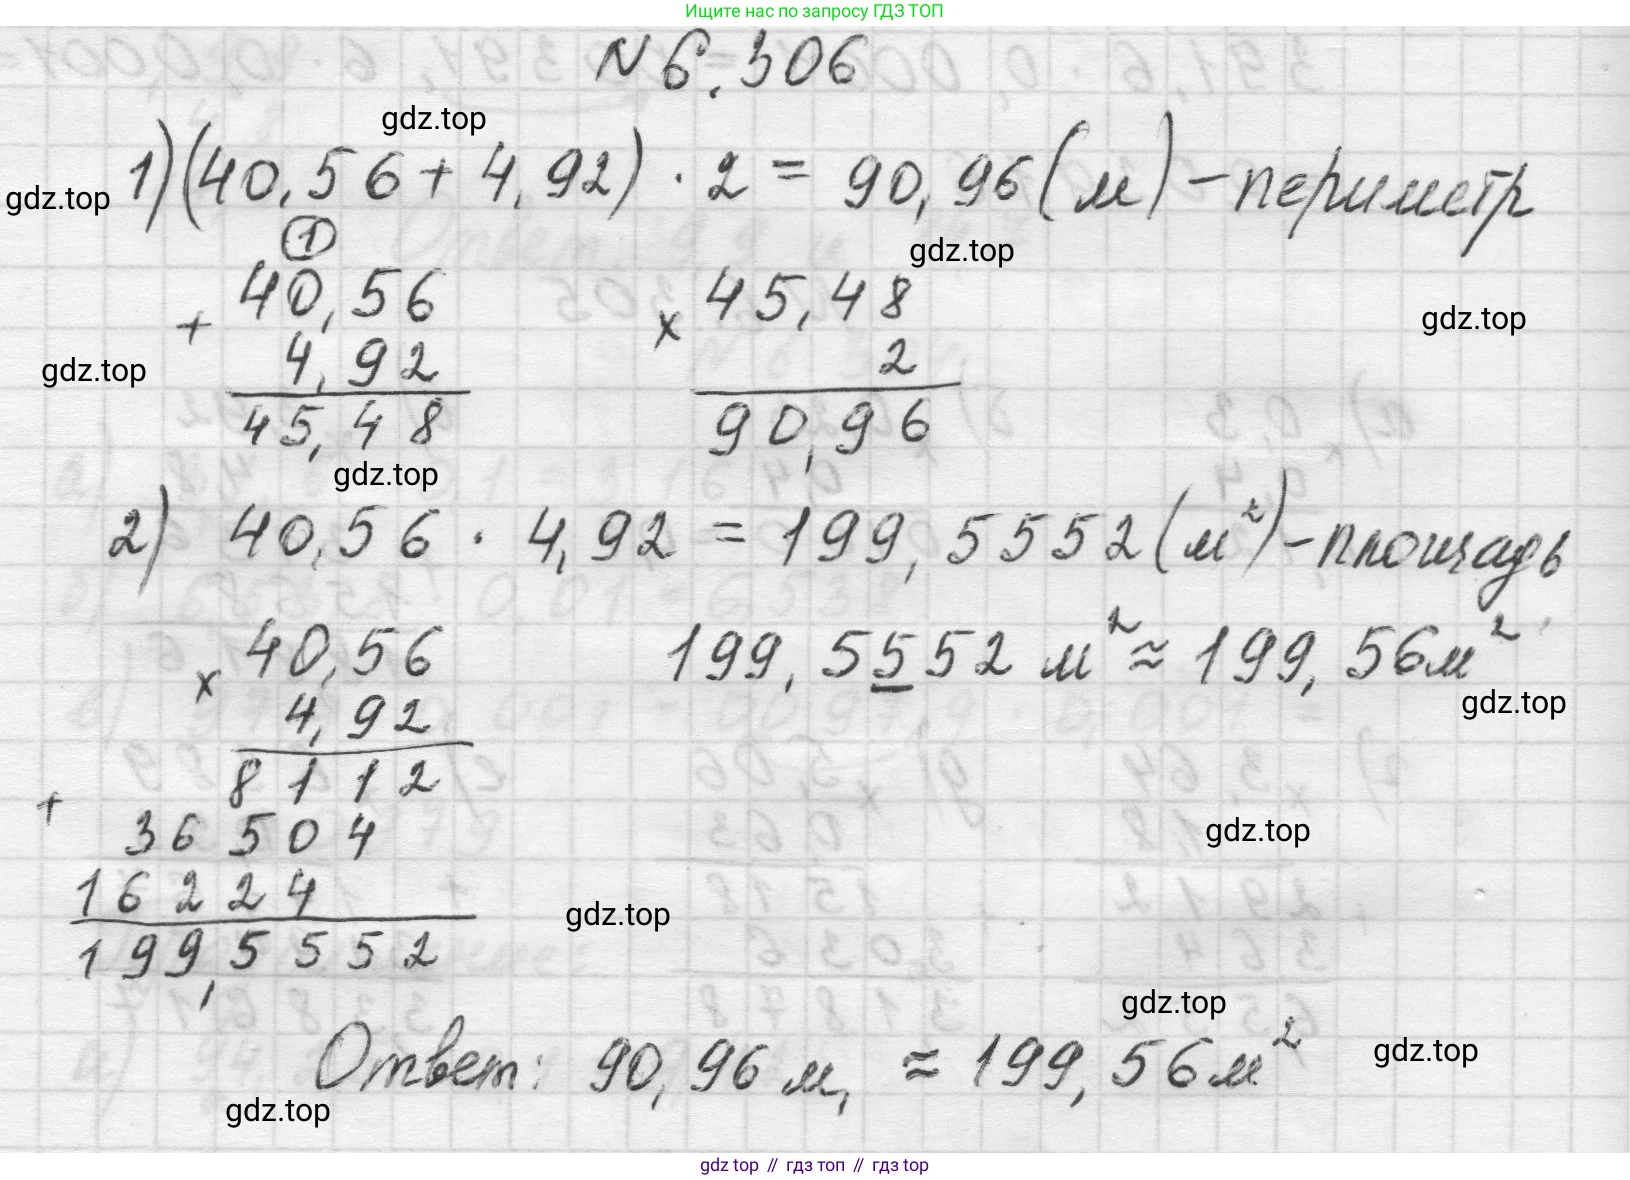 Ищите нас по запросу ГДЗ ТОП
N 6.306
gdz.top
gdz.top
1) (40,56 + 4,92) · 2 = 90,96 (м) - периметр
1
gdz.top
40,56
+ 4,92
45,48
× 45,48
2
90,96
gdz.top
gdz.top
gdz.top
2) 40,56 · 4,92 = 199,5552 (м²) - площадь
× 40,56
4,92
8112
+ 36504
16224
199,5552
199,5552 м² ≈ 199,56 м²
gdz.top
gdz.top
gdz.top
gdz.top
Ответ: 90,96 м, ≈ 199,56 м²
gdz.top
gdz.top
gdz top // гдз топ // гдз top